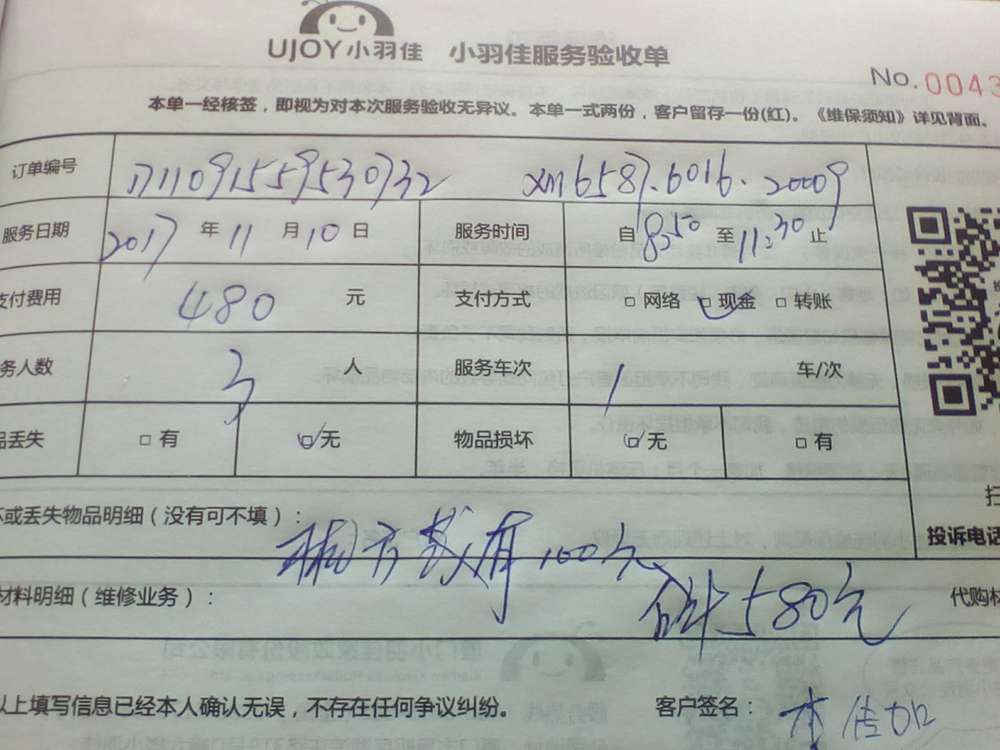 UJOY小羽佳 小羽佳服务验收单
No.0043
本单一经核签，即视为对本次服务验收无异议。本单一式两份，客户留存一份(红)。《维保须知》详见背面。
订单编号 xm6587.6016.20009
服务日期 2017 年 11 月 10 日 服务时间 自 8:50 至 11:30 止
支付费用 480 元 支付方式 □ 网络 ☑ 现金 □ 转账
务人数 3 人 服务车次 1 车/次
品丢失 □ 有 ☑ 无 物品损坏 ☑ 无 □ 有
坏或丢失物品明细（没有可不填）：
100元
材料明细（维修业务）： 合计580元 代购材
扫
投诉电话
以上填写信息已经本人确认无误，不存在任何争议纠纷。 客户签名：